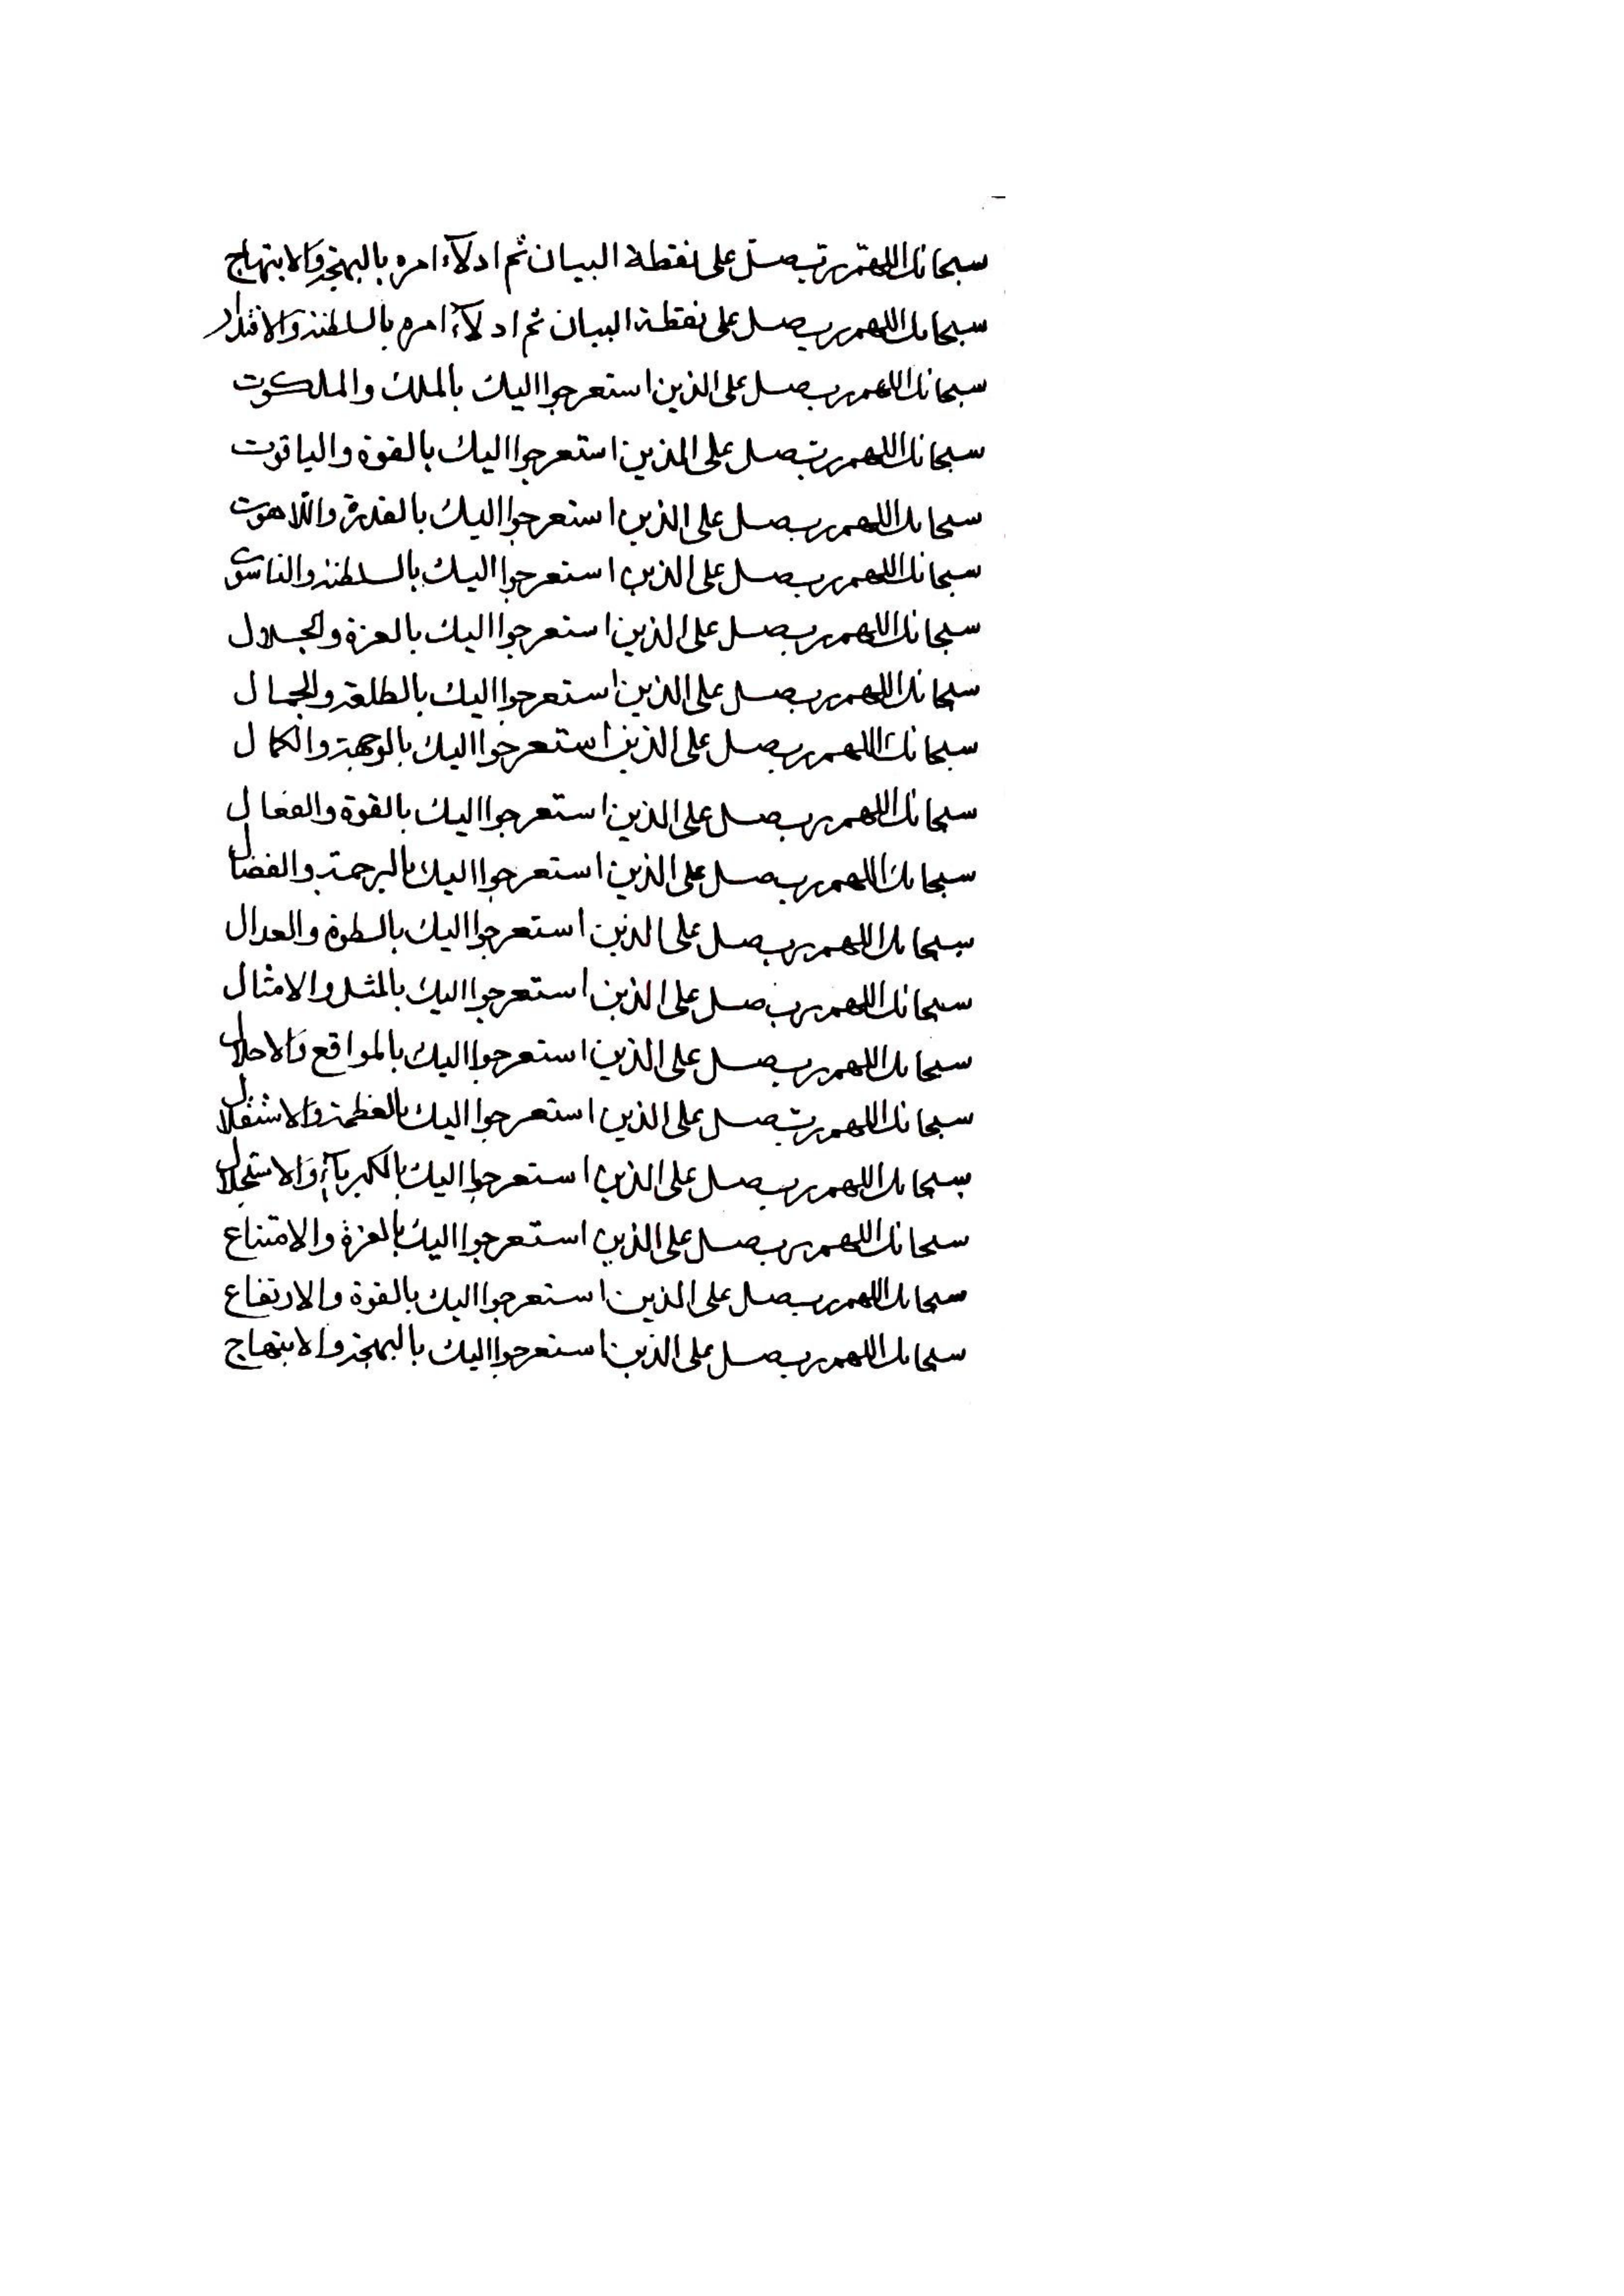 سبحانك اللهم رب صل على نقطة البيان ثم ادلآء امره بالبهجة والابتهاج
سبحانك اللهم رب صل على نقطة البيان ثم ادلآء امره بالسلطنة والاقتدار
سبحانك اللهم رب صل على الذين استعرجوا اليك بالملك والملكوت
سبحانك اللهم رب صل على الذين استعرجوا اليك بالقوة والياقوت
سبحانك اللهم رب صل على الذين استعرجوا اليك بالقدرة واللاهوت
سبحانك اللهم رب صل على الذين استعرجوا اليك بالسلطنة والناسوت
سبحانك اللهم رب صل على الذين استعرجوا اليك بالعزة والجلال
سبحانك اللهم رب صل على الذين استعرجوا اليك بالطلعة والجمال
سبحانك اللهم رب صل على الذين استعرجوا اليك بالوجهة والكمال
سبحانك اللهم رب صل على الذين استعرجوا اليك بالقوة والفعال
سبحانك اللهم رب صل على الذين استعرجوا اليك بالرحمة والفضال
سبحانك اللهم رب صل على الذين استعرجوا اليك بالسطوة والعدال
سبحانك اللهم رب صل على الذين استعرجوا اليك بالمثل والامثال
سبحانك اللهم رب صل على الذين استعرجوا اليك بالمواقع والاحلال
سبحانك اللهم رب صل على الذين استعرجوا اليك بالعظمة والاستقلال
سبحانك اللهم رب صل على الذين استعرجوا اليك بالكبرياء والاستجلال
سبحانك اللهم رب صل على الذين استعرجوا اليك بالعزة والامتناع
سبحانك اللهم رب صل على الذين استعرجوا اليك بالقوة والارتفاع
سبحانك اللهم رب صل على الذين استعرجوا اليك بالبهجة والابتهاج